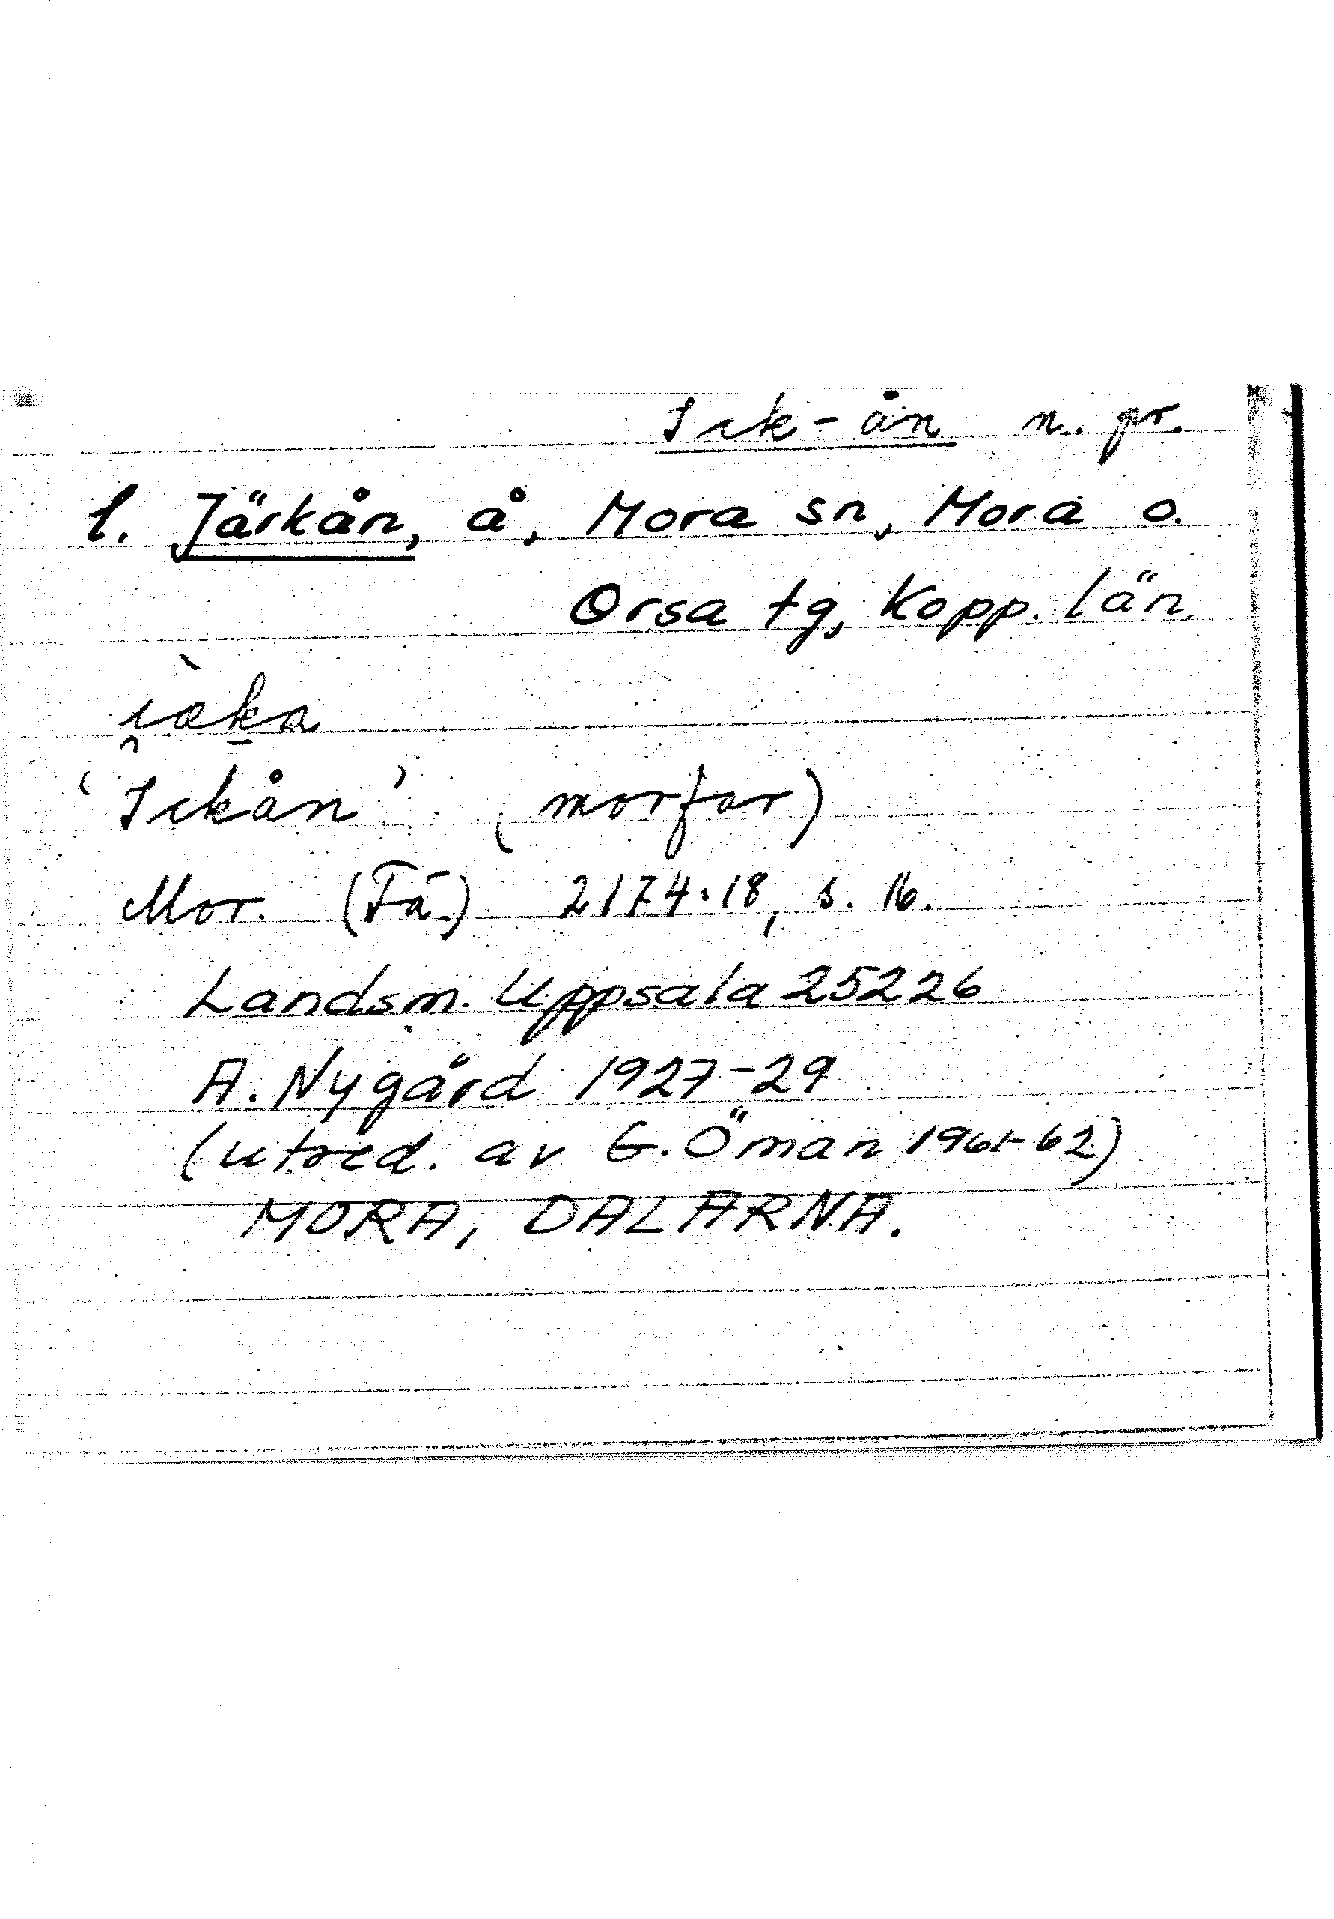 Ick-ån n. pr.
1. Järkån, å, Mora sn, Mora o.
Orsa tg, Kopp. län.
'Ickån' (morfar)
Mor. (Få.) 2174:18, s. 16.
Landsm. Uppsala 25226
A. Nygård 1927-29
(utred. av G. Öman 1961-62)
MORA, DALARNA.